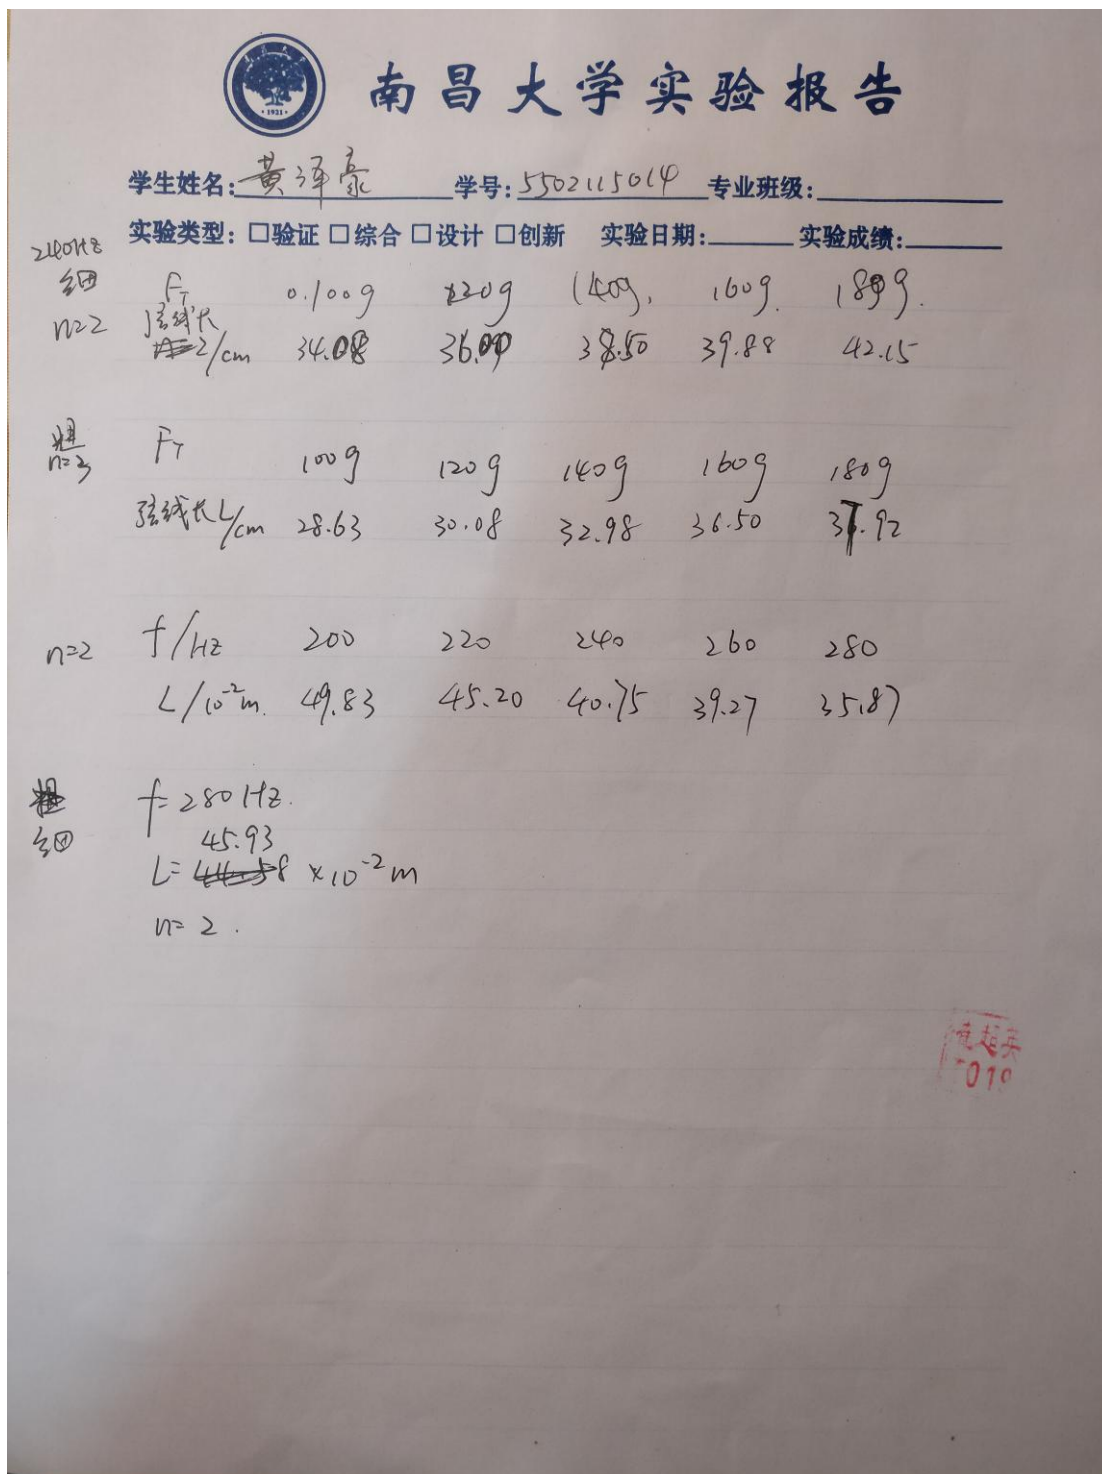 1921
南昌大学实验报告
学生姓名: 黄泽豪 学号: 5502115014 专业班级:
实验类型: □验证 □综合 □设计 □创新 实验日期: 实验成绩:
240Hz
细 F_T 0.100g 120g 140g. 160g. 180g.
n=2 弦线长
/cm 34.08 36.00 38.50 39.88 42.15
粗 F_T 100g 120g 140g 160g 180g
n=3
弦线长L/cm 28.63 30.08 32.98 36.50 37.92
n=2 f/Hz 200 220 240 260 280
L/10⁻²m. 49.83 45.20 40.75 39.27 35.87
f=280Hz.
细 45.93
L= ×10⁻²m
n=2.
019